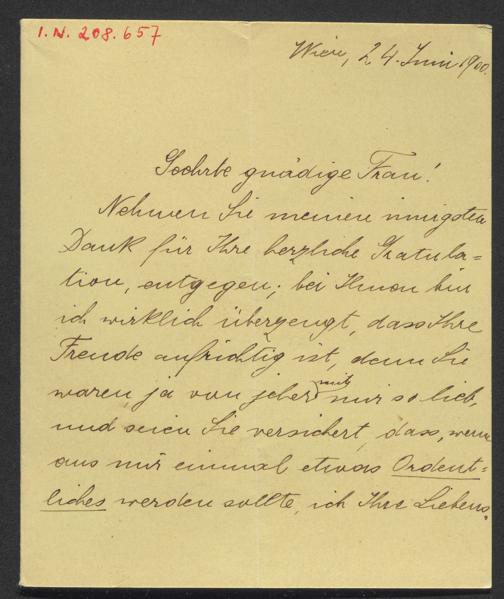 I.N. 208.657
Wien, 24. Juni 1900.
Geehrte gnädige Frau!
Nehmen Sie meinen innigsten
Dank für Ihre herzliche Gratula=
tion, entgegen; bei Ihnen bin
ich wirklich überzeugt, dass Ihre
Freude aufrichtig ist, denn Sie
waren ja von jeher mit mir so lieb,
und seien Sie versichert, dass, wenn
aus mir einmal etwas Ordent=
liches werden sollte, ich Ihre Liebens